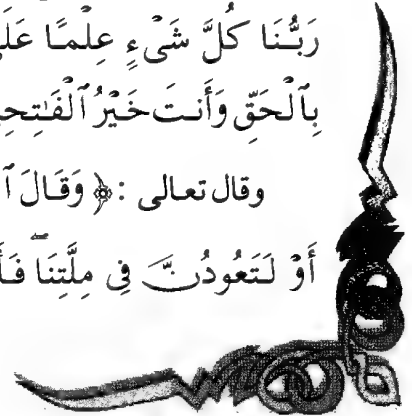 رَبُّنَا كُلَّ شَىْءٍ عِلْمًا
بِٱلْحَقِّ وَأَنتَ خَيْرُ
وقال تعالى : ﴿ وَقَالَ
أَوْ لَتَعُودُنَّ فِى مِلَّتِنَا